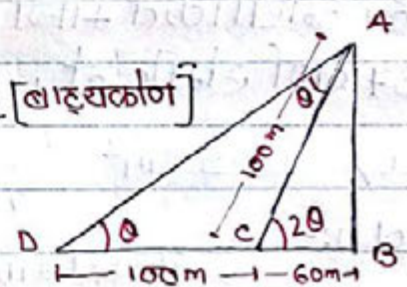 A
[बाह्यकोण]
θ
100m
D θ C 2θ B
100m 60m